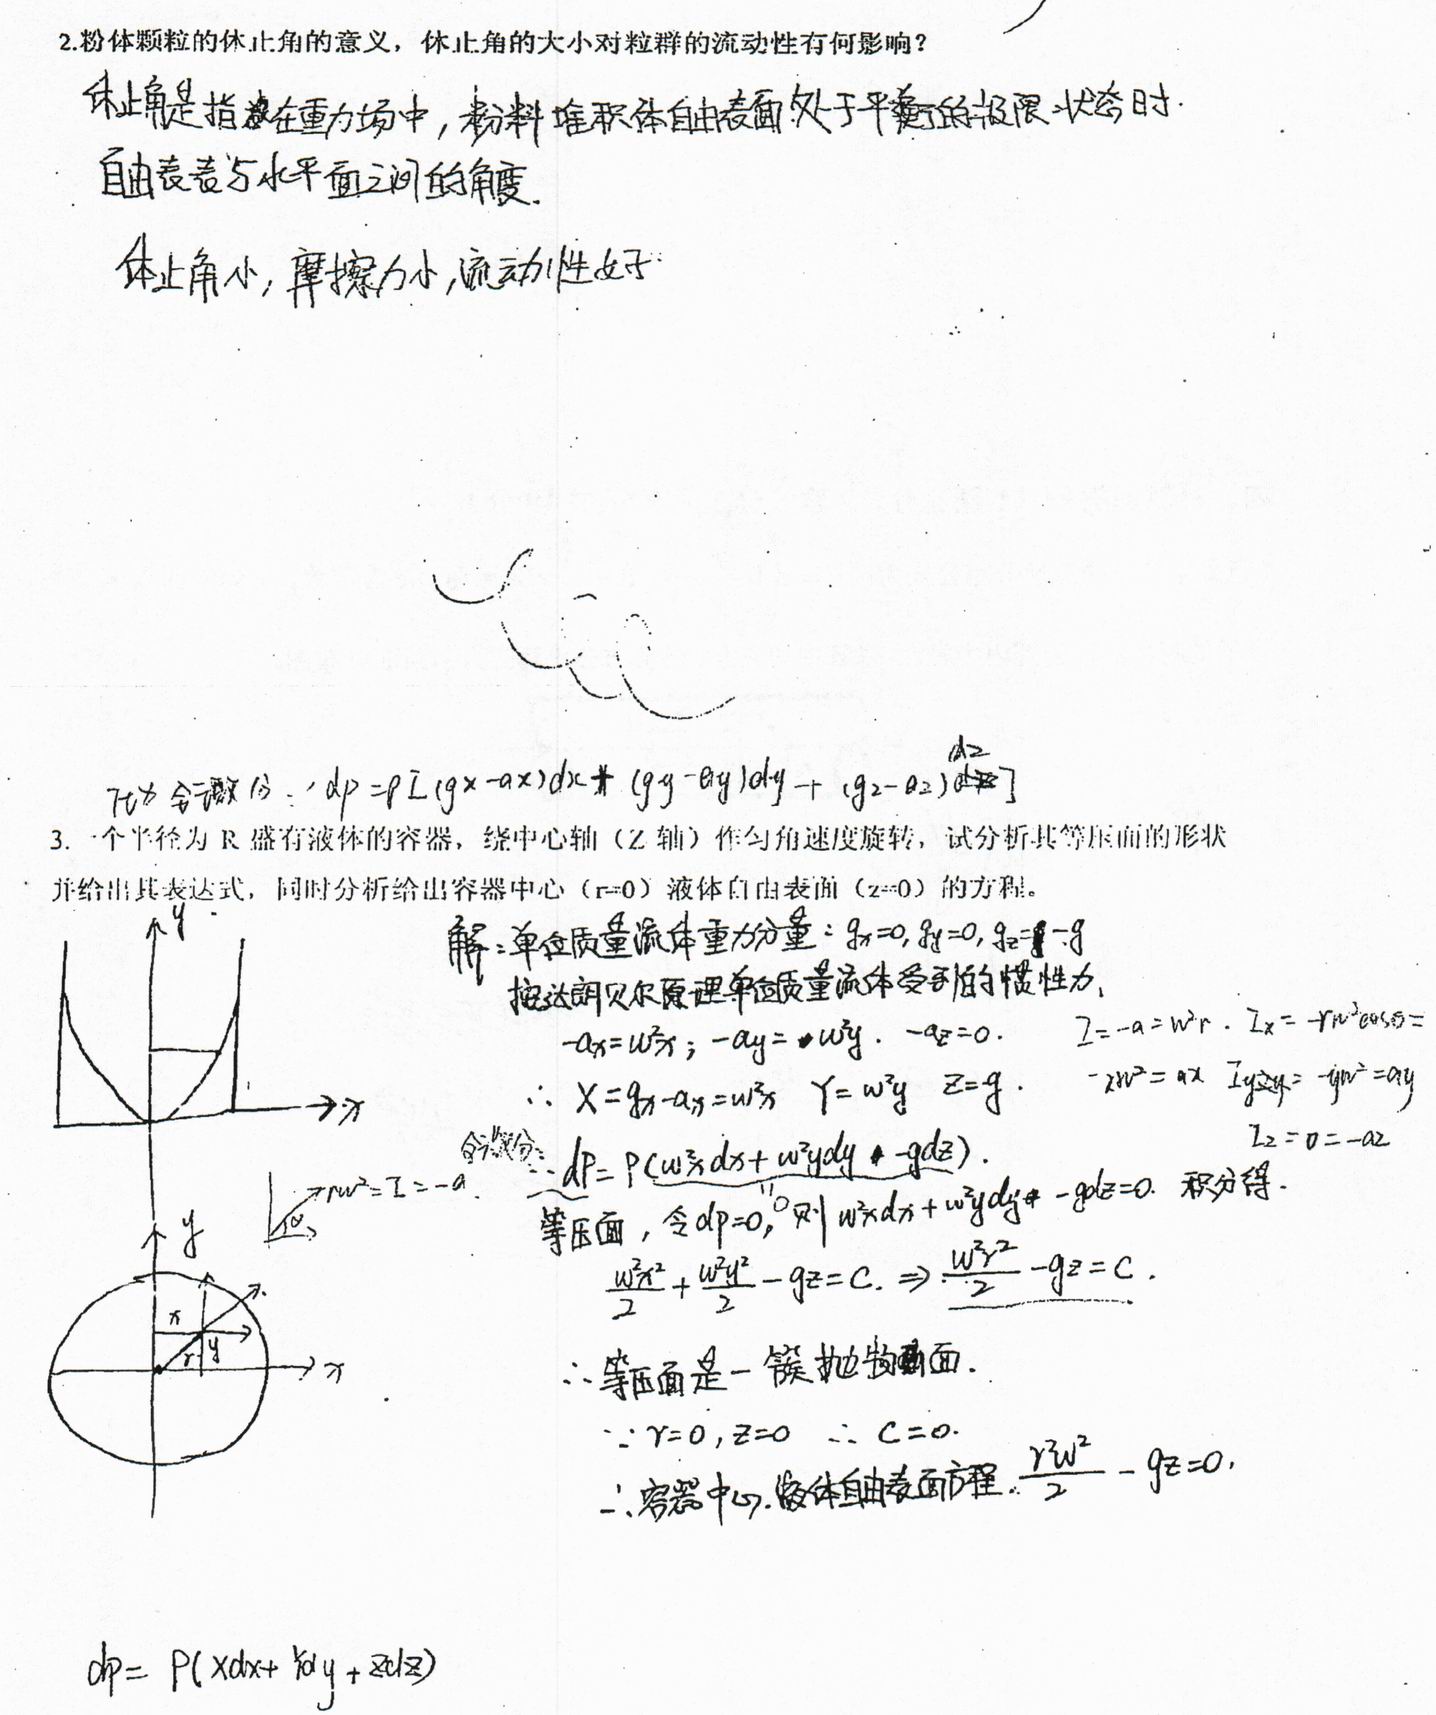 2.粉体颗粒的休止角的意义，休止角的大小对粒群的流动性有何影响？
休止角是指在重力场中，粉料堆积体自由表面处于平衡的极限状态时.
自由表表与水平面之间的角度.
休止角小，摩擦力小，流动性好.
dp=ρ[(gx-ax)dx+(gy-ay)dy+(gz-az)dz]
3. 一个半径为 R 盛有液体的容器，绕中心轴（Z 轴）作匀角速度旋转，试分析其等压面的形状
并给出其表达式，同时分析给出容器中心（r=0）液体自由表面（z=0）的方程。
y
解：单位质量流体重力分量：gx=0, gy=0, gz=-g
按达朗贝尔原理单位质量流体受到的惯性力,
-ax=w²x; -ay=w²y. -az=0.
I=-a=w²r. Ix=-rw²cosθ=
-xw²=ax Iy=-yw²=ay
Iz=0=-az
x
∴ X=gx-ax=w²x Y=w²y Z=g.
全微分:
∴ dP=ρ(w²xdx+w²ydy-gdz).
rw²=I=-a.
等压面，令dp=0, 则 w²xdx+w²ydy-gdz=0. 积分得.
"0
y
w²x²/2+w²y²/2-gz=C. ⇒ w²r²/2-gz=C.
x
y
r
x
∴等压面是一簇抛物面.
∵ r=0, z=0 ∴ C=0.
∴容器中心.液体自由表面方程. r²w²/2-gz=0.
dp= ρ(Xdx+Ydy+Zdz)